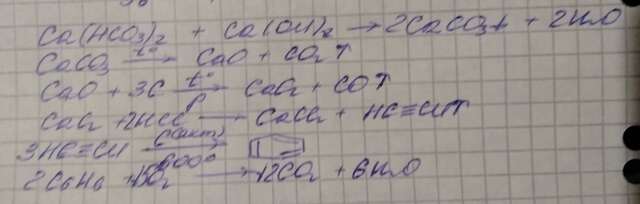 Ca(HCO3)2 + Ca(OH)2 → 2CaCO3↓ + 2H2O
CaCO3 t°→ CaO + CO2↑
CaO + 3C t°→ CaC2 + CO↑
CaC2 + 2HCl → CaCl2 + HC≡CH↑
3HC≡CH C(акт) 600° →
2C6H6 + 15O2 → 12CO2 + 6H2O